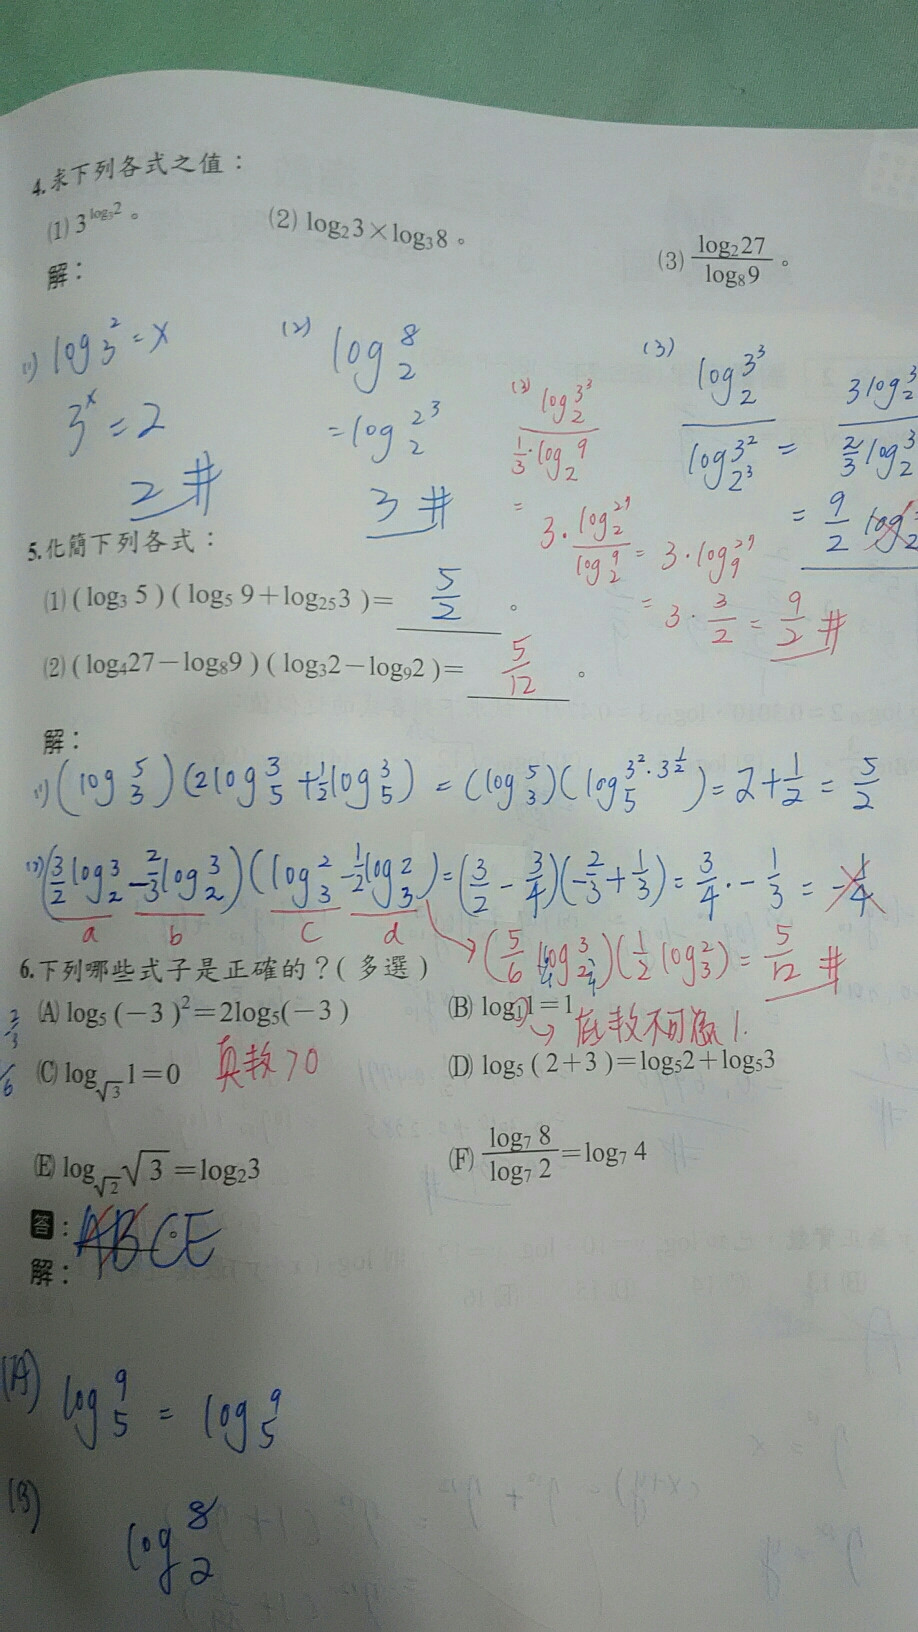 4.求下列各式之值：
(1) 3^{log₃2}。 (2) log₂3×log₃8。 (3) log₂27/log₈9。
解：
(1) log₃² = x
3^x = 2
2 #
(2) log₂⁸
= log₂^{2³}
3 #
(3) log₂^{3³} / (1/3·log₂⁹)
= 3·log₂²⁷/log₂⁹ = 3·log₉²⁷
= 3·3/2 = 9/2 #
(3) log₂^{3³} / log_{2³}^{3²} = 3log₂³ / (2/3 log₂³)
= 9/2
5.化簡下列各式：
(1) (log₃ 5) (log₅ 9+log₂₅3)= 5/2 。
(2) (log₄27−log₈9) (log₃2−log₉2)= 5/12 。
解：
(1) (log₃⁵)(2log₅³ + 1/2 log₅³) = (log₃⁵)(log₅^{3²·3^{1/2}}) = 2 + 1/2 = 5/2
(2) (3/2 log₂³ − 2/3 log₂³)(log₃² − 1/2 log₃²) = (3/2 − 3/4)(−2/3 + 1/3) = 3/4 · −1/3 = −1/4
a b c d
→ (5/6 log₂³)(1/2 log₃²) = 5/12 #
6.下列哪些式子是正確的？(多選)
(A) log₅ (−3)²=2log₅(−3) (B) log₁1=1
→ 底数不可為 1.
(C) log_{√3}1=0 真数>0 (D) log₅ (2+3)=log₅2+log₅3
(E) log_{√2}√3=log₂3 (F) log₇ 8/log₇ 2=log₇ 4
答：ABCE
解：
(A) log₅⁹ = log₅⁹
(B)
log₂⁸